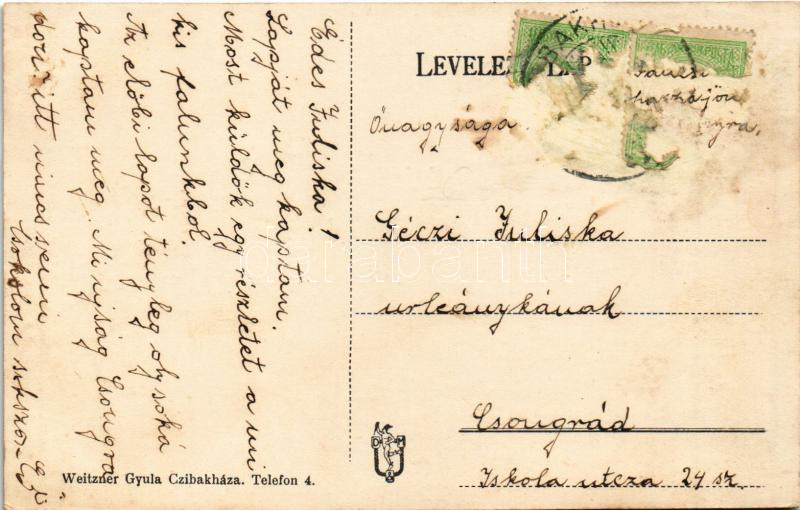 Édes Juliska!
Lapját meg kaptam.
Most küldök egy részletet a mi
kis falunkból.
Az előbi lapot tényleg oly soká
kaptam meg. Mi ujság Csongrá
don itt nincs semi
Csokolom sokszor
LEVELEZ LAP
BAK
Őnagysága
Géczi Juliska
urleánykának
Csongrád
Iskola utcza 24 sz.
Weitzner Gyula Czibakháza. Telefon 4.
D M
darabanth